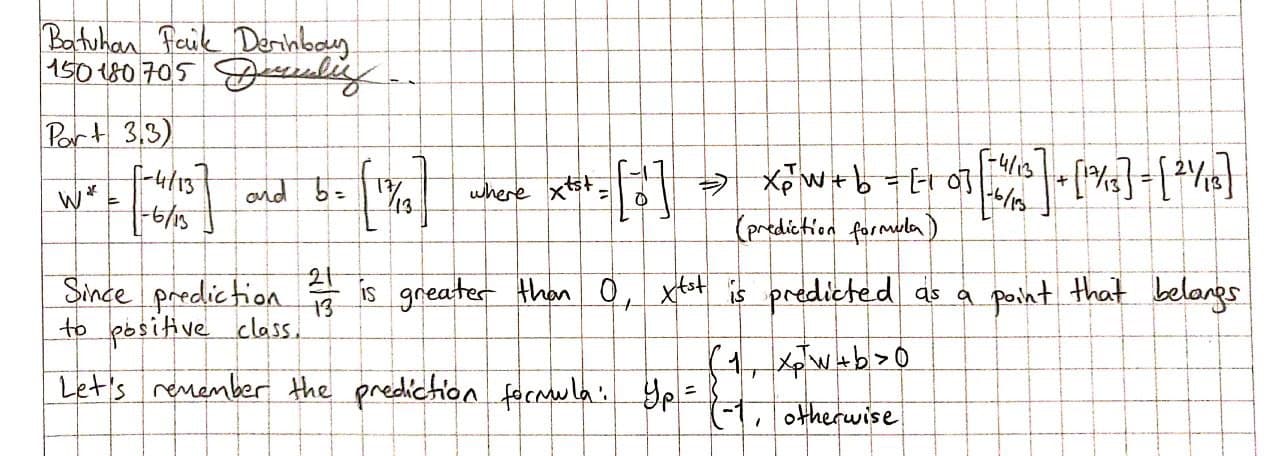 Batuhan Faik Derinbay
150180705
Part 3.3)
W* = [-4/13 -6/13] and b = [17/13] where x^tst = [-1 0] ⇒ x_p^T w + b = [-1 0] [-4/13 -6/13] + [17/13] = [21/13]
(prediction formula)
Since prediction 21/13 is greater than 0, x^tst is predicted as a point that belongs
to positive class.
Let's remember the prediction formula: y_p = { 1, x_p^T w + b > 0
{ -1, otherwise